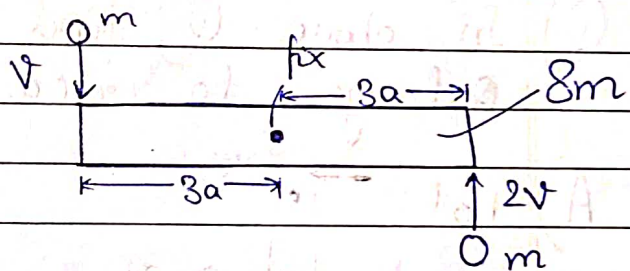 m
V
fix
3a
8m
3a
2V
m